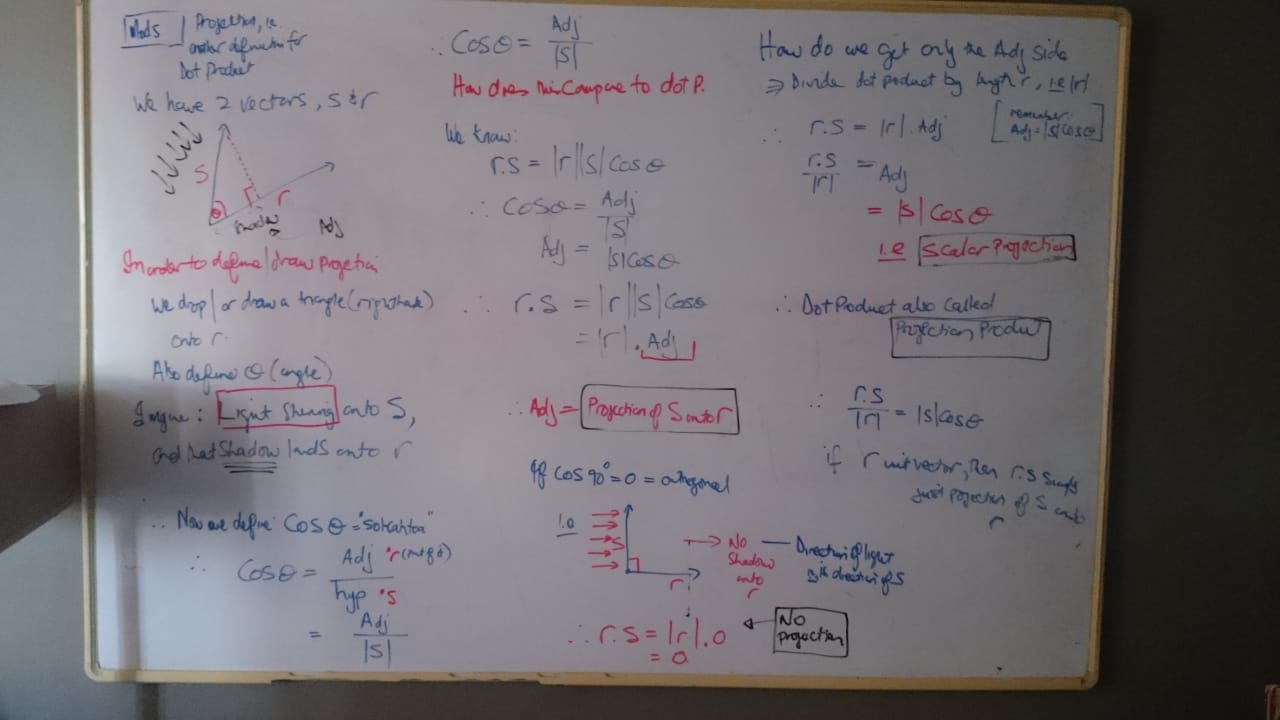 Projection, i.e.
another definition for
Dot Product
We have 2 vectors, s & r
S
r
θ
Shadow
Adj
In order to define/draw projection
We drop/or draw a triangle
onto r.
Also define θ (angle)
Imagine: Light Shining onto S,
and that Shadow lands onto r
∴ Now we define: Cos θ = "Sohcahtoa"
∴ Cos θ = Adj °r
hyp °s
= Adj
|s|
∴ Cos θ = Adj
|s|
How does this Compare to dot P.
We know:
r.s = |r||s| Cos θ
∴ Cos θ = Adj
|s|
Adj = |s| Cos θ
∴ r.s = |r||s| Cos θ
= |r| . Adj
∴ Adj = Projection of S onto r
If Cos 90° = 0 = orthogonal
i.e
S
r
No
Shadow
onto
r
— Direction of light
is direction of S
∴ r.s = |r|.0
= 0
No
projection
How do we get only the Adj side
⇒ Divide dot product by length r, i.e |r|
∴ r.s = |r| . Adj
[remember:
Adj = |s| Cos θ]
r.s
|r|
= Adj
= |s| Cos θ
i.e Scalar Projection
∴ Dot Product also Called
Projection Product
∴ r.s
|r|
= |s| Cos θ
if r unit vector, then r.s simply
just projection of S onto
r